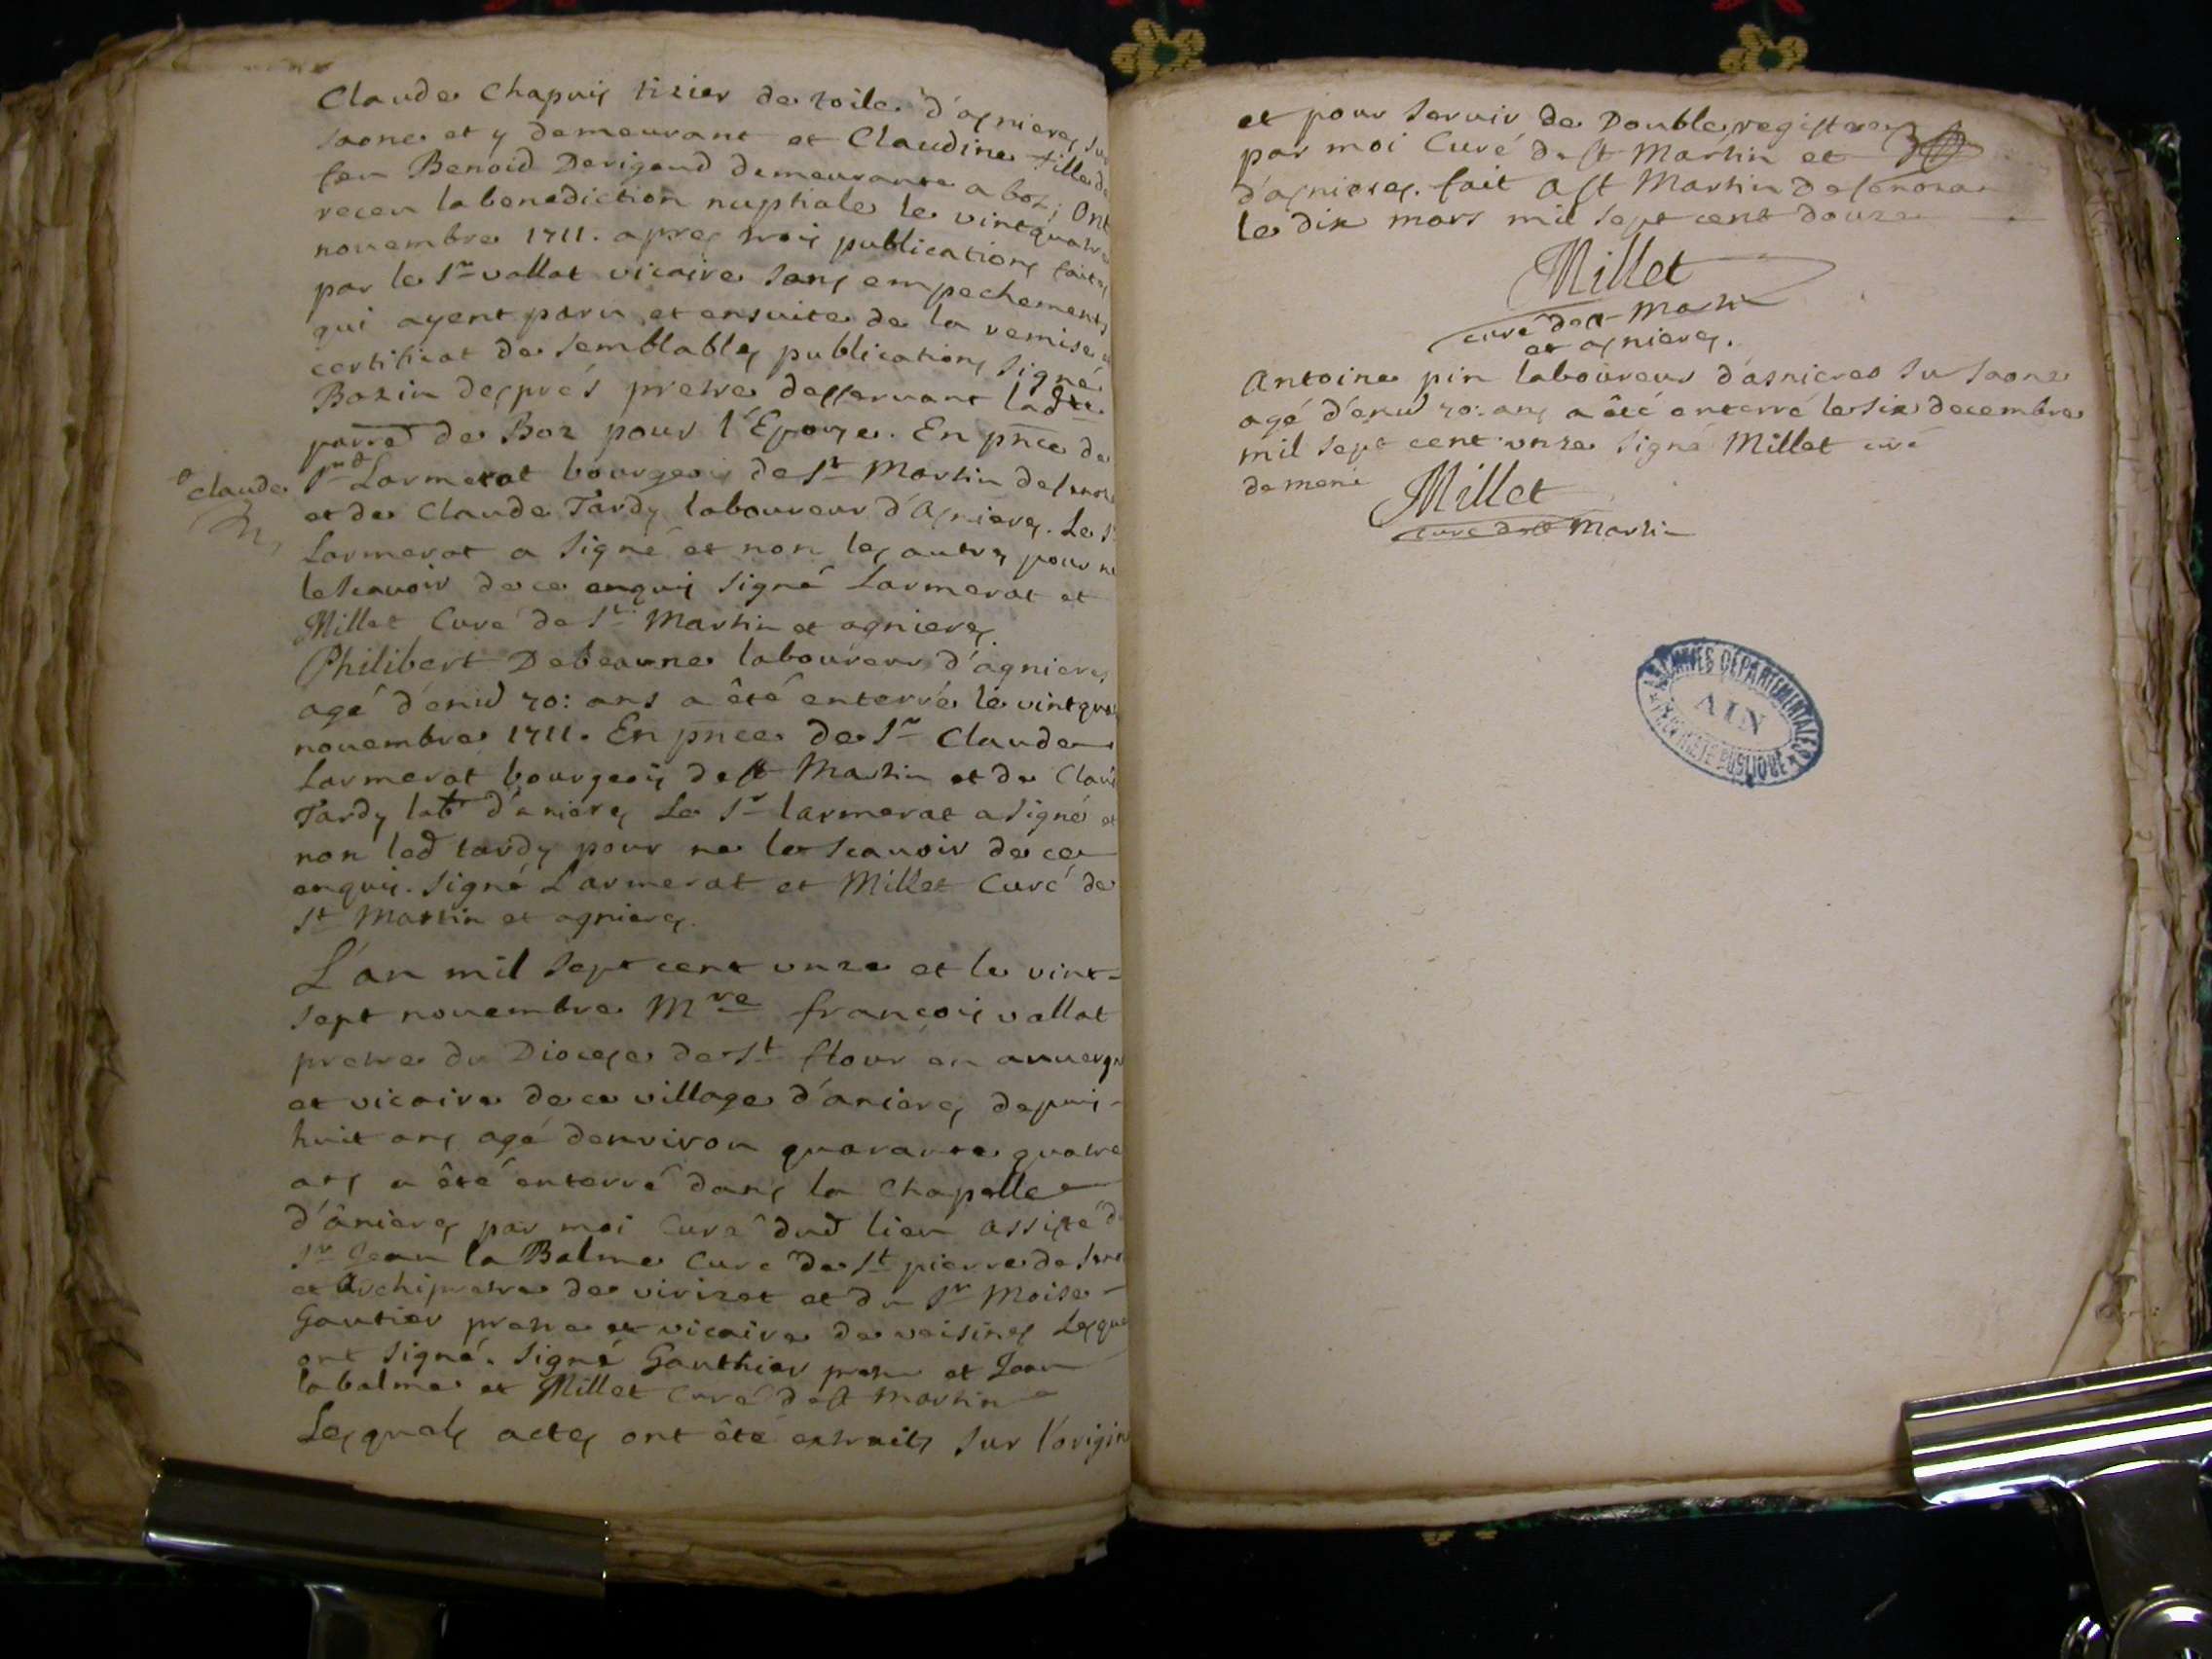 Claude Chapuis tisier de toile d'asnieres sur
saone et y demeurant et Claudine fille de
feu Benoid Derigaud demeurante a boz; Ont
receu la benediction nuptiale le vintquatre
novembre 1711. apres trois publications faites
par le Sr vallat vicaire sans empechements
qui ayent paru et ensuite de la remise
certificat de semblables publications signé
Bozin després pretre desservant ladte
parre de Boz pour l'Epouse. En pnce de
Sr Larmerat bourgeois de St Martin de senoza
claude
et de Claude Tardy laboureur d'Asnieres. Le Sr
Larmerat a signé et non les autres pour ne
le scauoir de ce enquis signé Larmerat et
Millet Curé de St Martin et asnieres.
Philibert Debeaune laboureur d'asnieres
agé d'enuid 70: ans a êté enterré le vintqua
nouembre 1711. En pnce de Sr Claude
Larmerat bourgeois de st Martin et de Claude
Tardy labr d'anieres Le Sr larmerat a signé et
non led tardy pour ne le scauoir de ce
enquis. signé Larmerat et Millet Curé de
St Martin et asnieres.
L'an mil sept cent unze et le vint-
sept nouembre Mre françois vallat
pretre du Diocese de St flour en auuergne
et vicaire de ce village d'anieres depuis
huit ans agé denviron quarante quatre
ans a êté enterré dans la Chapelle
d'âniers par moi Curé dud lieu assisté de
Sr Jean la Balme Curé de St pierre de
et Archipretre de virizet et du Sr Moise
Gautier pretre et vicaire de voisines Lesque
ont signé. signé Gauthier pretre et Jean
labalme et Millet Curé de st martin
Lesquels actes ont êté extraits sur l'origin
et pour servir de Double registre
par moi Curé de st Martin et
d'asnieres. fait a st Martin de senozan
le dix mars mil sept cent douze
Millet
curé de st Martin
et asnieres.
Antoine pin laboureur d'asnieres su saone
agé d'enuid 70: ans a êté enterré le six decembre
mil sept cent unze signé Millet curé
de meme
Millet
curé de st Martin
ARCHIVES DÉPARTEMENTALES
AIN
PROPRIÉTÉ PUBLIQUE